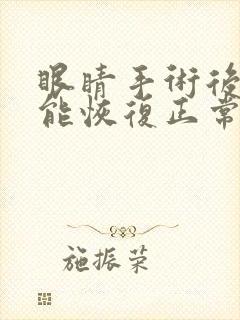 眼睛手術後
能恢復正常
施振荣